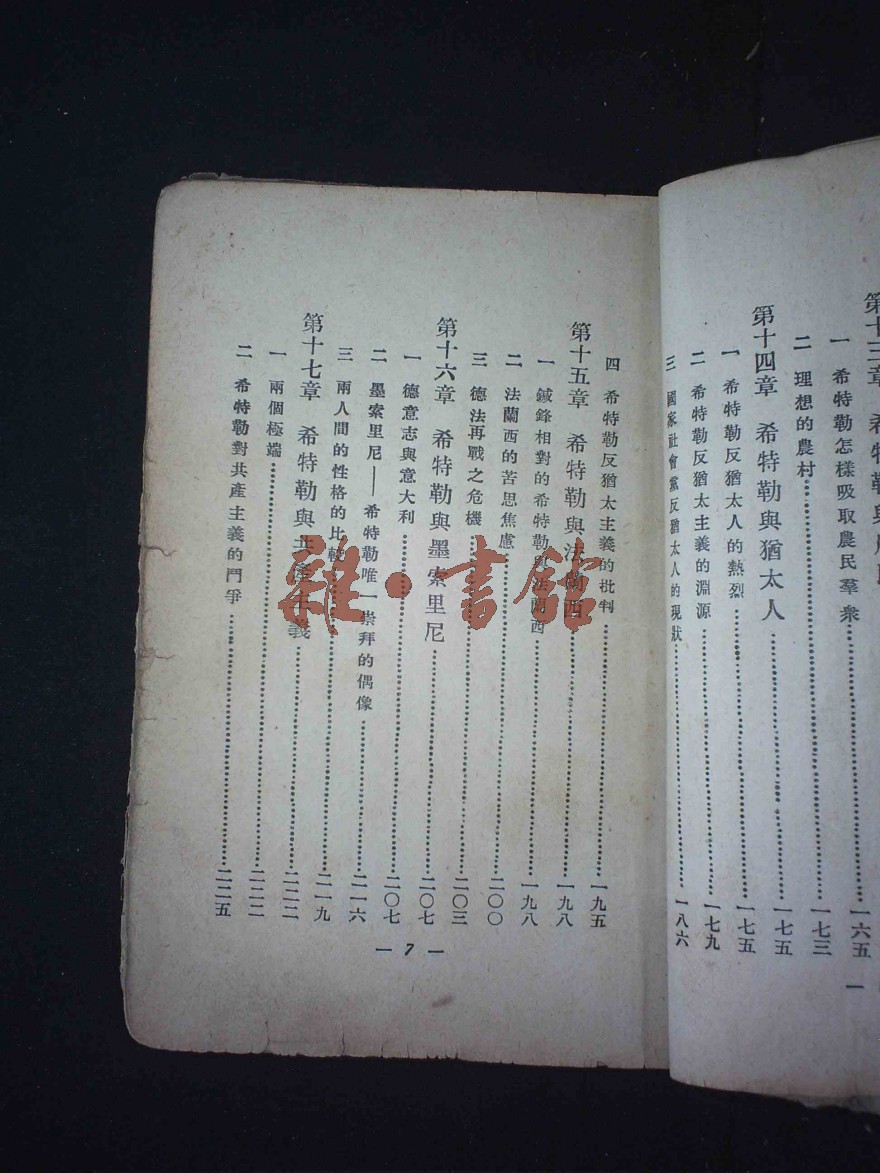 一 希特勒怎樣吸取農民羣衆……一六五
二 理想的農村……一七三
第十四章 希特勒與猶太人……一七五
一 希特勒反猶太人的熱烈……一七五
二 希特勒反猶太主義的淵源……一七九
三 國家社會黨反猶太人的現狀……一八六
四 希特勒反猶太主義的批判……一九五
第十五章 希特勒與法蘭西……一九八
一 鍼鋒相對的希特勒與法蘭西……一九八
二 法蘭西的苦思焦慮……二〇〇
三 德法再戰之危機……二〇三
第十六章 希特勒與墨索里尼……二〇七
一 德意志與意大利……二〇七
二 墨索里尼——希特勒唯一崇拜的偶像……二一六
三 兩人間的性格的比較……二一九
第十七章 希特勒與共產主義……二二二
一 兩個極端……二二二
二 希特勒對共產主義的鬥爭……二二五
— 7 —
雜·書館